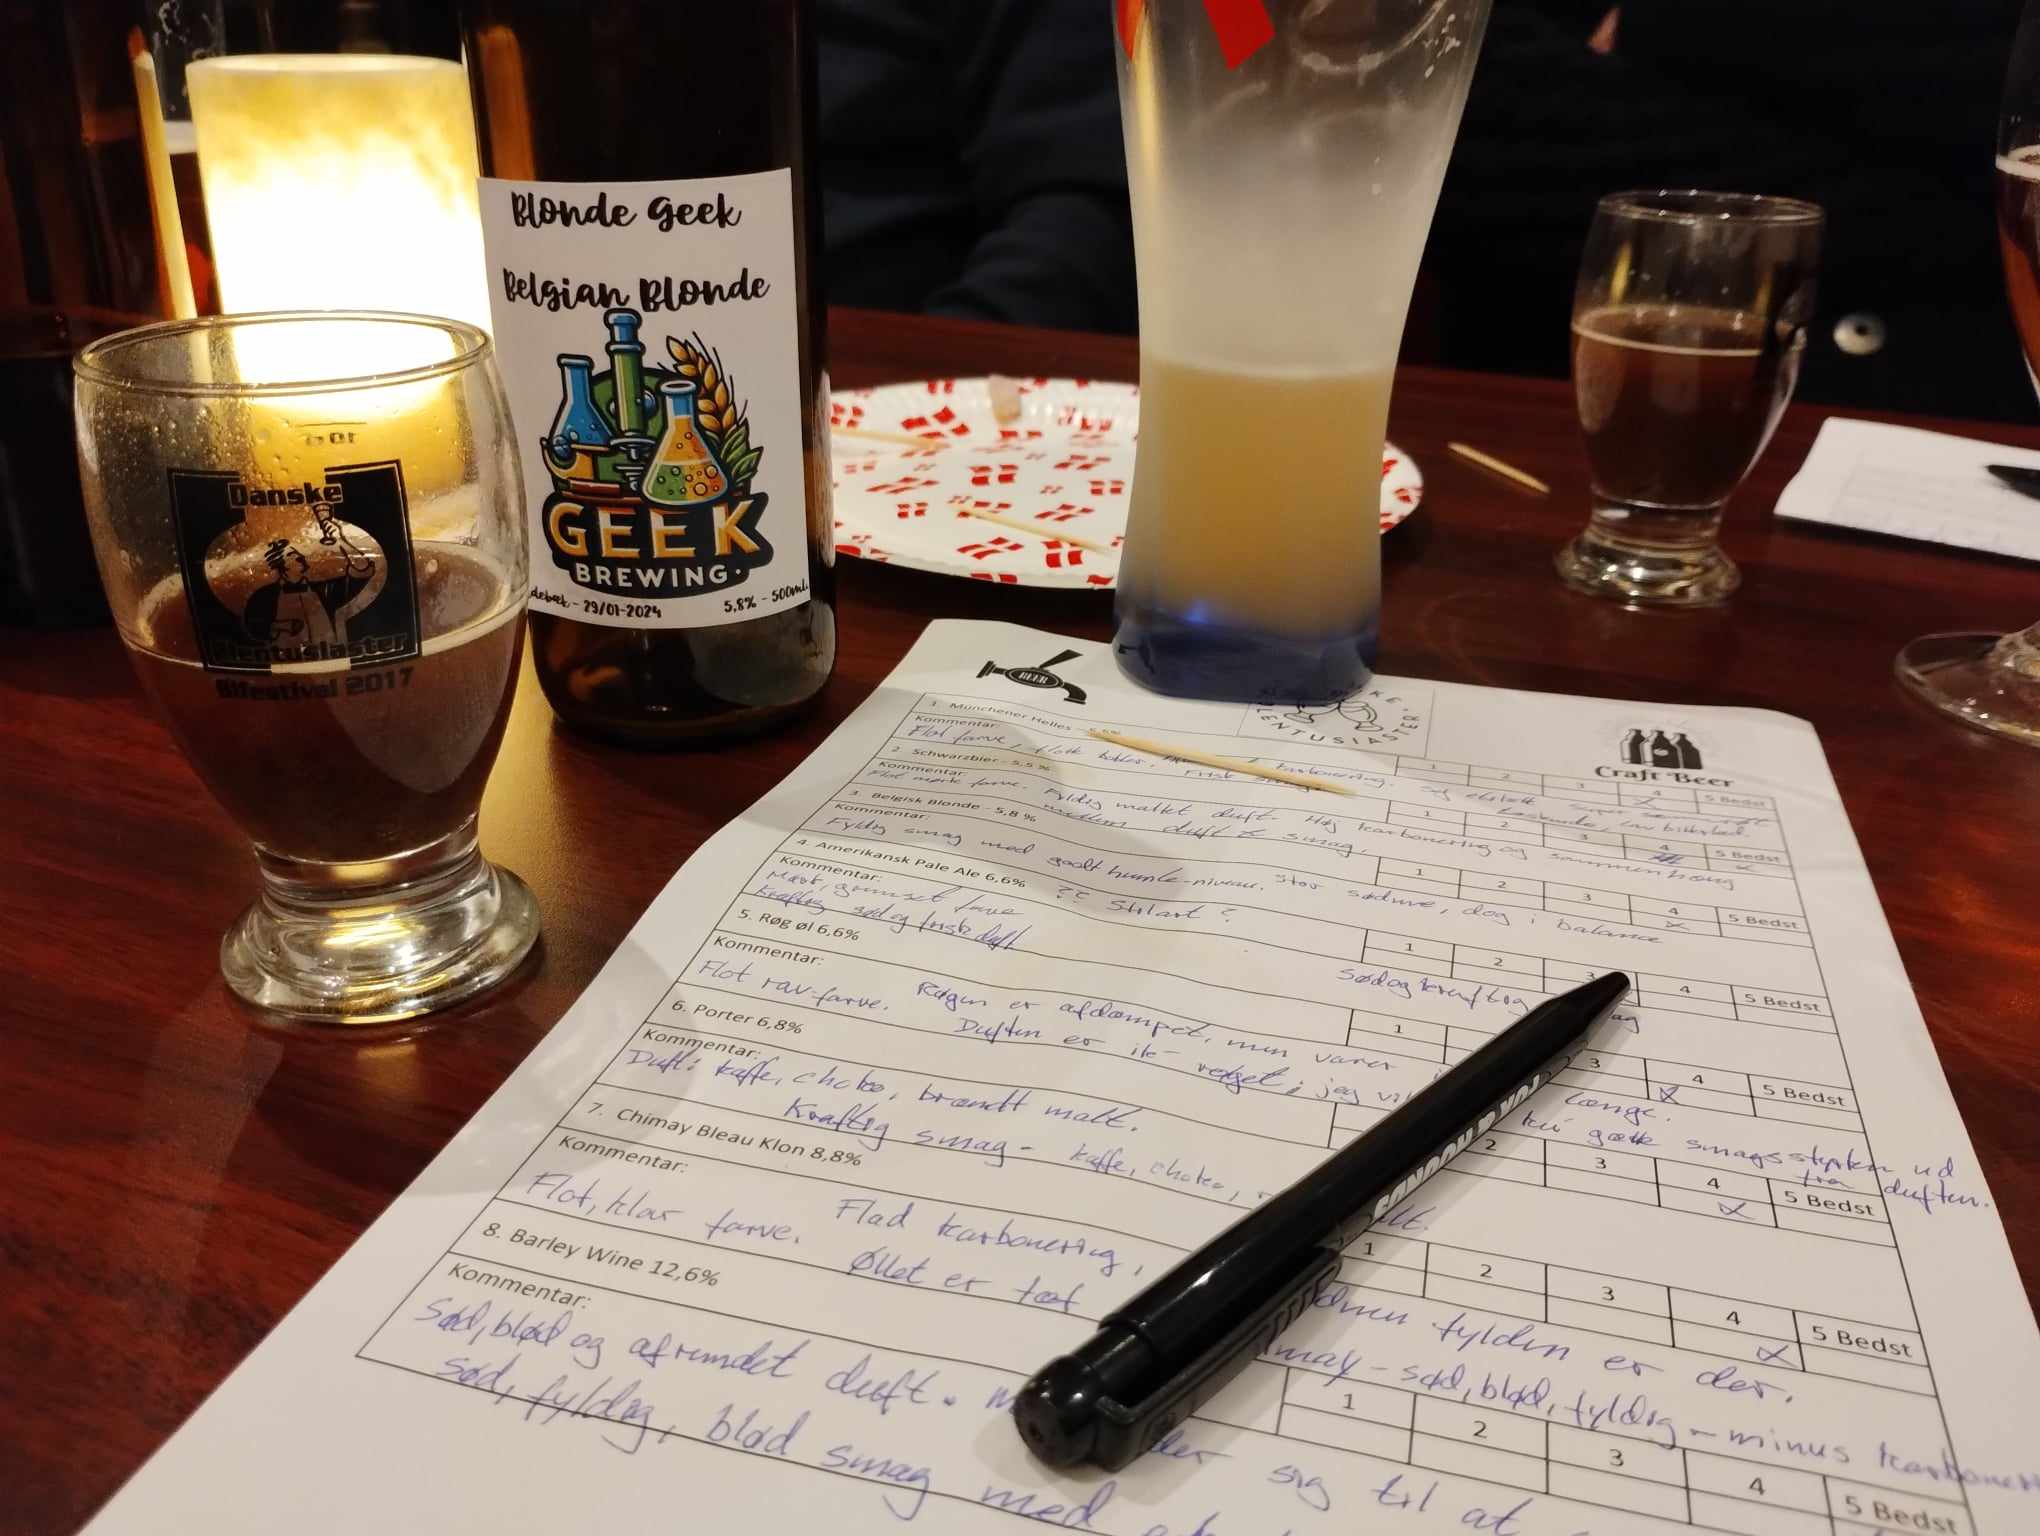 Blonde Geek
Belgian Blonde
GEEK
BREWING.
debæk - 29/01-2024
5,8% - 500ml.
10 cl
Danske
Ølentusiaster
Ølfestival 2017
BEER
ENTUSIASTER
Craft Beer
1. Münchener Helles - 5,5%
1 2 3 4 5 Bedst
Kommentar:
Flot farve, flotte bobler,
karbonering.
Frisk smag
2. Schwarzbier - 5,5 %
1 2 3 4 5 Bedst
Kommentar:
Flot mørk farve. Fyldig maltet duft. Høj karbonering og sammenhæng
mellem duft & smag.
3. Belgisk Blonde - 5,8 %
1 2 3 4 5 Bedst
Kommentar:
Fyldig smag med godt humle-niveau. Stor sødme, dog i balance
4. Amerikansk Pale Ale 6,6% ?? Stilart?
1 2 3 4 5 Bedst
Kommentar:
Mørk, grumset farve
Kraftig sød og frisk duft
Sød og kraftig
5. Røg øl 6,6%
1 3 4 5 Bedst
Kommentar:
Flot rav-farve. Røgen er afdæmpet, men varer
længe.
Duften er ik-røget; jeg vil
gætte smagsstyrken ud
fra duften.
6. Porter 6,8%
2 3 4 5 Bedst
Kommentar:
Duft: kaffe, choko, brændt malt.
Kraftig smag - kaffe, choko,
7. Chimay Bleau Klon 8,8%
1 2 3 4 5 Bedst
Kommentar:
Flot, klar farve. Flad karbonering,
fylden er der.
Øllet er tæt
- sød, blød, fyldig - minus
8. Barley Wine 12,6%
1 2 3 4 5 Bedst
Kommentar:
Sød, blød og afrundet duft.
sig til at
sød, fyldig, blød smag med